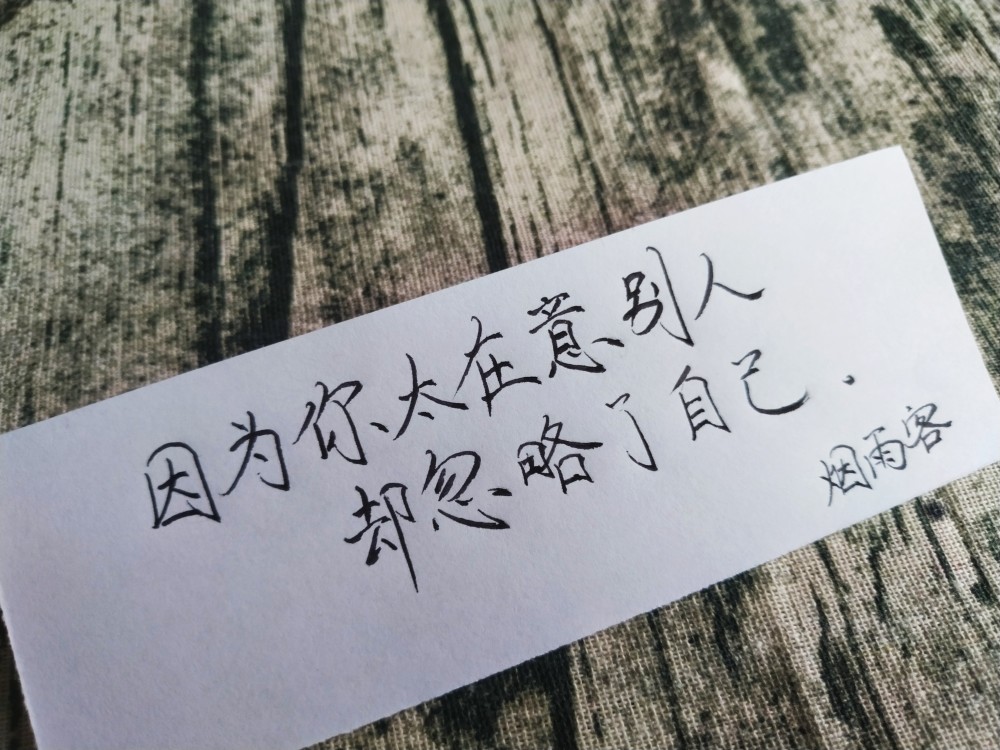 因为你太在意别人
却忽略了自己.
烟雨客